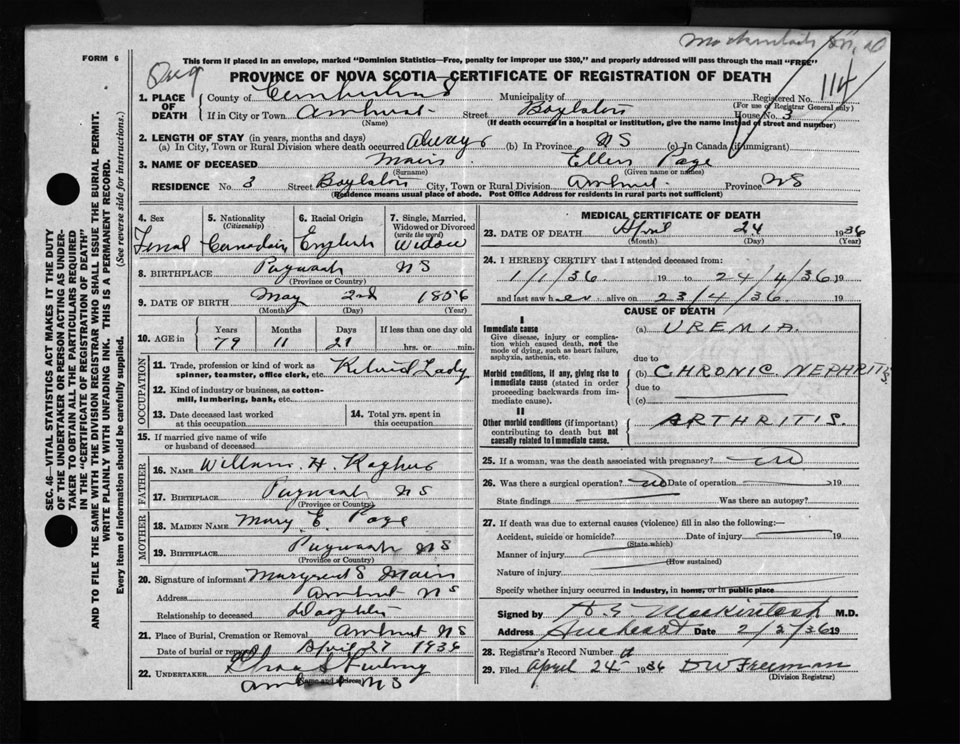 FORM 6
This form if placed in an envelope, marked "Dominion Statistics—Free, penalty for improper use $300," and properly addressed will pass through the mail "FREE"
PROVINCE OF NOVA SCOTIA—CERTIFICATE OF REGISTRATION OF DEATH
114
1. PLACE OF DEATH County of Cumberland Municipality of Registered No.
(For use of Registrar General only)
If in City or Town Amherst Street Boylston House No. 3
(Name) (If death occurred in a hospital or institution, give the name instead of street and number)
2. LENGTH OF STAY (in years, months and days)
(a) In City, Town or Rural Division where death occurred Always (b) In Province NS (c) In Canada (if immigrant)
3. NAME OF DECEASED Main Ellen Page
(Surname) (Given name or names)
RESIDENCE No. 3 Street Boylston City, Town or Rural Division Amherst Province NS
(Residence means usual place of abode. Post Office Address for residents in rural parts not sufficient)
4. Sex 5. Nationality (Citizenship) 6. Racial Origin 7. Single, Married, Widowed or Divorced (write the word)
Femal Canadain English Widow
8. BIRTHPLACE Pugwash NS
(Province or Country)
9. DATE OF BIRTH May 2nd 1856
(Month) (Day) (Year)
10. AGE in Years Months Days If less than one day old
79 11 21 hrs. or min.
OCCUPATION
11. Trade, profession or kind of work as spinner, teamster, office clerk, etc. Retired Lady
12. Kind of industry or business, as cotton-mill, lumbering, bank, etc.
13. Date deceased last worked at this occupation
14. Total yrs. spent in this occupation
15. If married give name of wife or husband of deceased
FATHER
16. NAME William H.
17. BIRTHPLACE Pugwash NS
(Province or Country)
MOTHER
18. MAIDEN NAME Mary E. Page
19. BIRTHPLACE Pugwash NS
(Province or Country)
20. Signature of informant Margaret S Main
Address Amherst NS
Relationship to deceased Daughter
21. Place of Burial, Cremation or Removal Amherst NS
Date of burial or removal April 27 1936
22. UNDERTAKER Chas S Furlong
Amherst NS
(Name and address)
MEDICAL CERTIFICATE OF DEATH
23. DATE OF DEATH April 24 1936
(Month) (Day) (Year)
24. I HEREBY CERTIFY that I attended deceased from:
1/1/36 19 to 24/4/36 19
and last saw her alive on 23/4/36 19
CAUSE OF DEATH
I
Immediate cause (a) UREMIA.
Give disease, injury or complication which caused death, not the mode of dying, such as heart failure, asphyxia, asthenia, etc.
due to
Morbid conditions, if any, giving rise to immediate cause (stated in order proceeding backwards from immediate cause). (b) CHRONIC. NEPHRITIS.
due to
(c)
II
Other morbid conditions (if important) contributing to death but not causally related to immediate cause. ARTHRITIS.
25. If a woman, was the death associated with pregnancy? no
26. Was there a surgical operation? no Date of operation 19
State findings Was there an autopsy?
27. If death was due to external causes (violence) fill in also the following:—
Accident, suicide or homicide? Date of injury 19
(State which)
Manner of injury
(How sustained)
Nature of injury
Specify whether injury occurred in industry, in home, or in public place
Signed by H. E. Mackintosh M.D.
Address Amherst Date 2/5/36 19
28. Registrar's Record Number
29. Filed April 24 1936 D W Freeman
(Division Registrar)
SEC. 46—VITAL STATISTICS ACT MAKES IT THE DUTY
OF THE UNDERTAKER OR PERSON ACTING AS UNDER-
TAKER TO OBTAIN ALL THE PARTICULARS REQUIRED
IN THE "CERTIFICATE OF REGISTRATION OF DEATH"
AND TO FILE THE SAME WITH THE DIVISION REGISTRAR WHO SHALL ISSUE THE BURIAL PERMIT.
WRITE PLAINLY WITH UNFADING INK. THIS IS A PERMANENT RECORD.
Every item of Information should be carefully supplied. (See reverse side for instructions.)